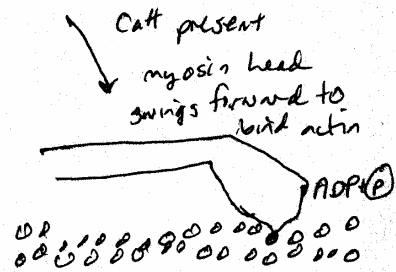 Ca++ present
myosin head
swings forward to
bind actin
ADP+P